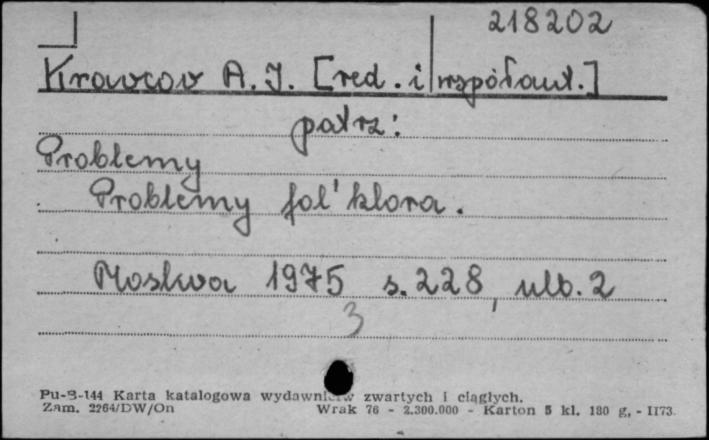 218202
Kravcov A. I. [red. i współaut.]
patrz:
Problemy
Problemy fol'klora.
Moskva 1975 s. 228, nlb. 2
3
Pu-B-144 Karta katalogowa wydawnictw zwartych i ciągłych.
Zam. 2264/DW/On Wrak 76 - 2.300.000 - Karton 5 kl. 180 g. - II73.